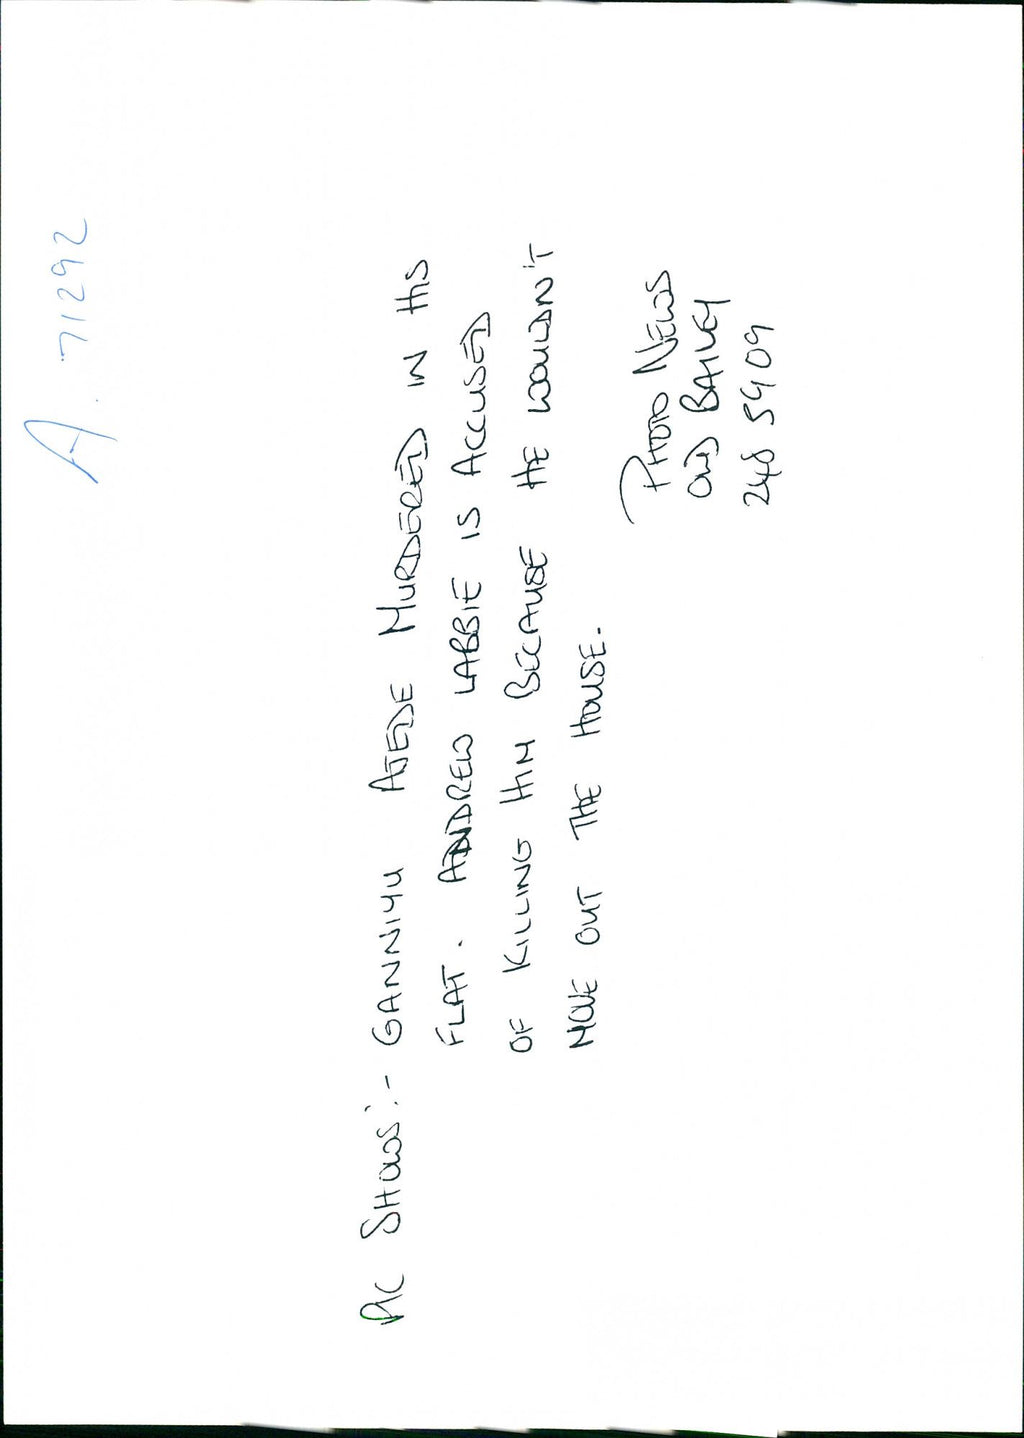 A. 71292
PIC SHOWS:- GANNIYU AJEDE MURDERED IN HIS
FLAT. ANDREW LABBIE IS ACCUSED
OF KILLING HIM BECAUSE HE WOULDN'T
MOVE OUT THE HOUSE.
PHOTO NEWS
OLD BAILEY
248 5909